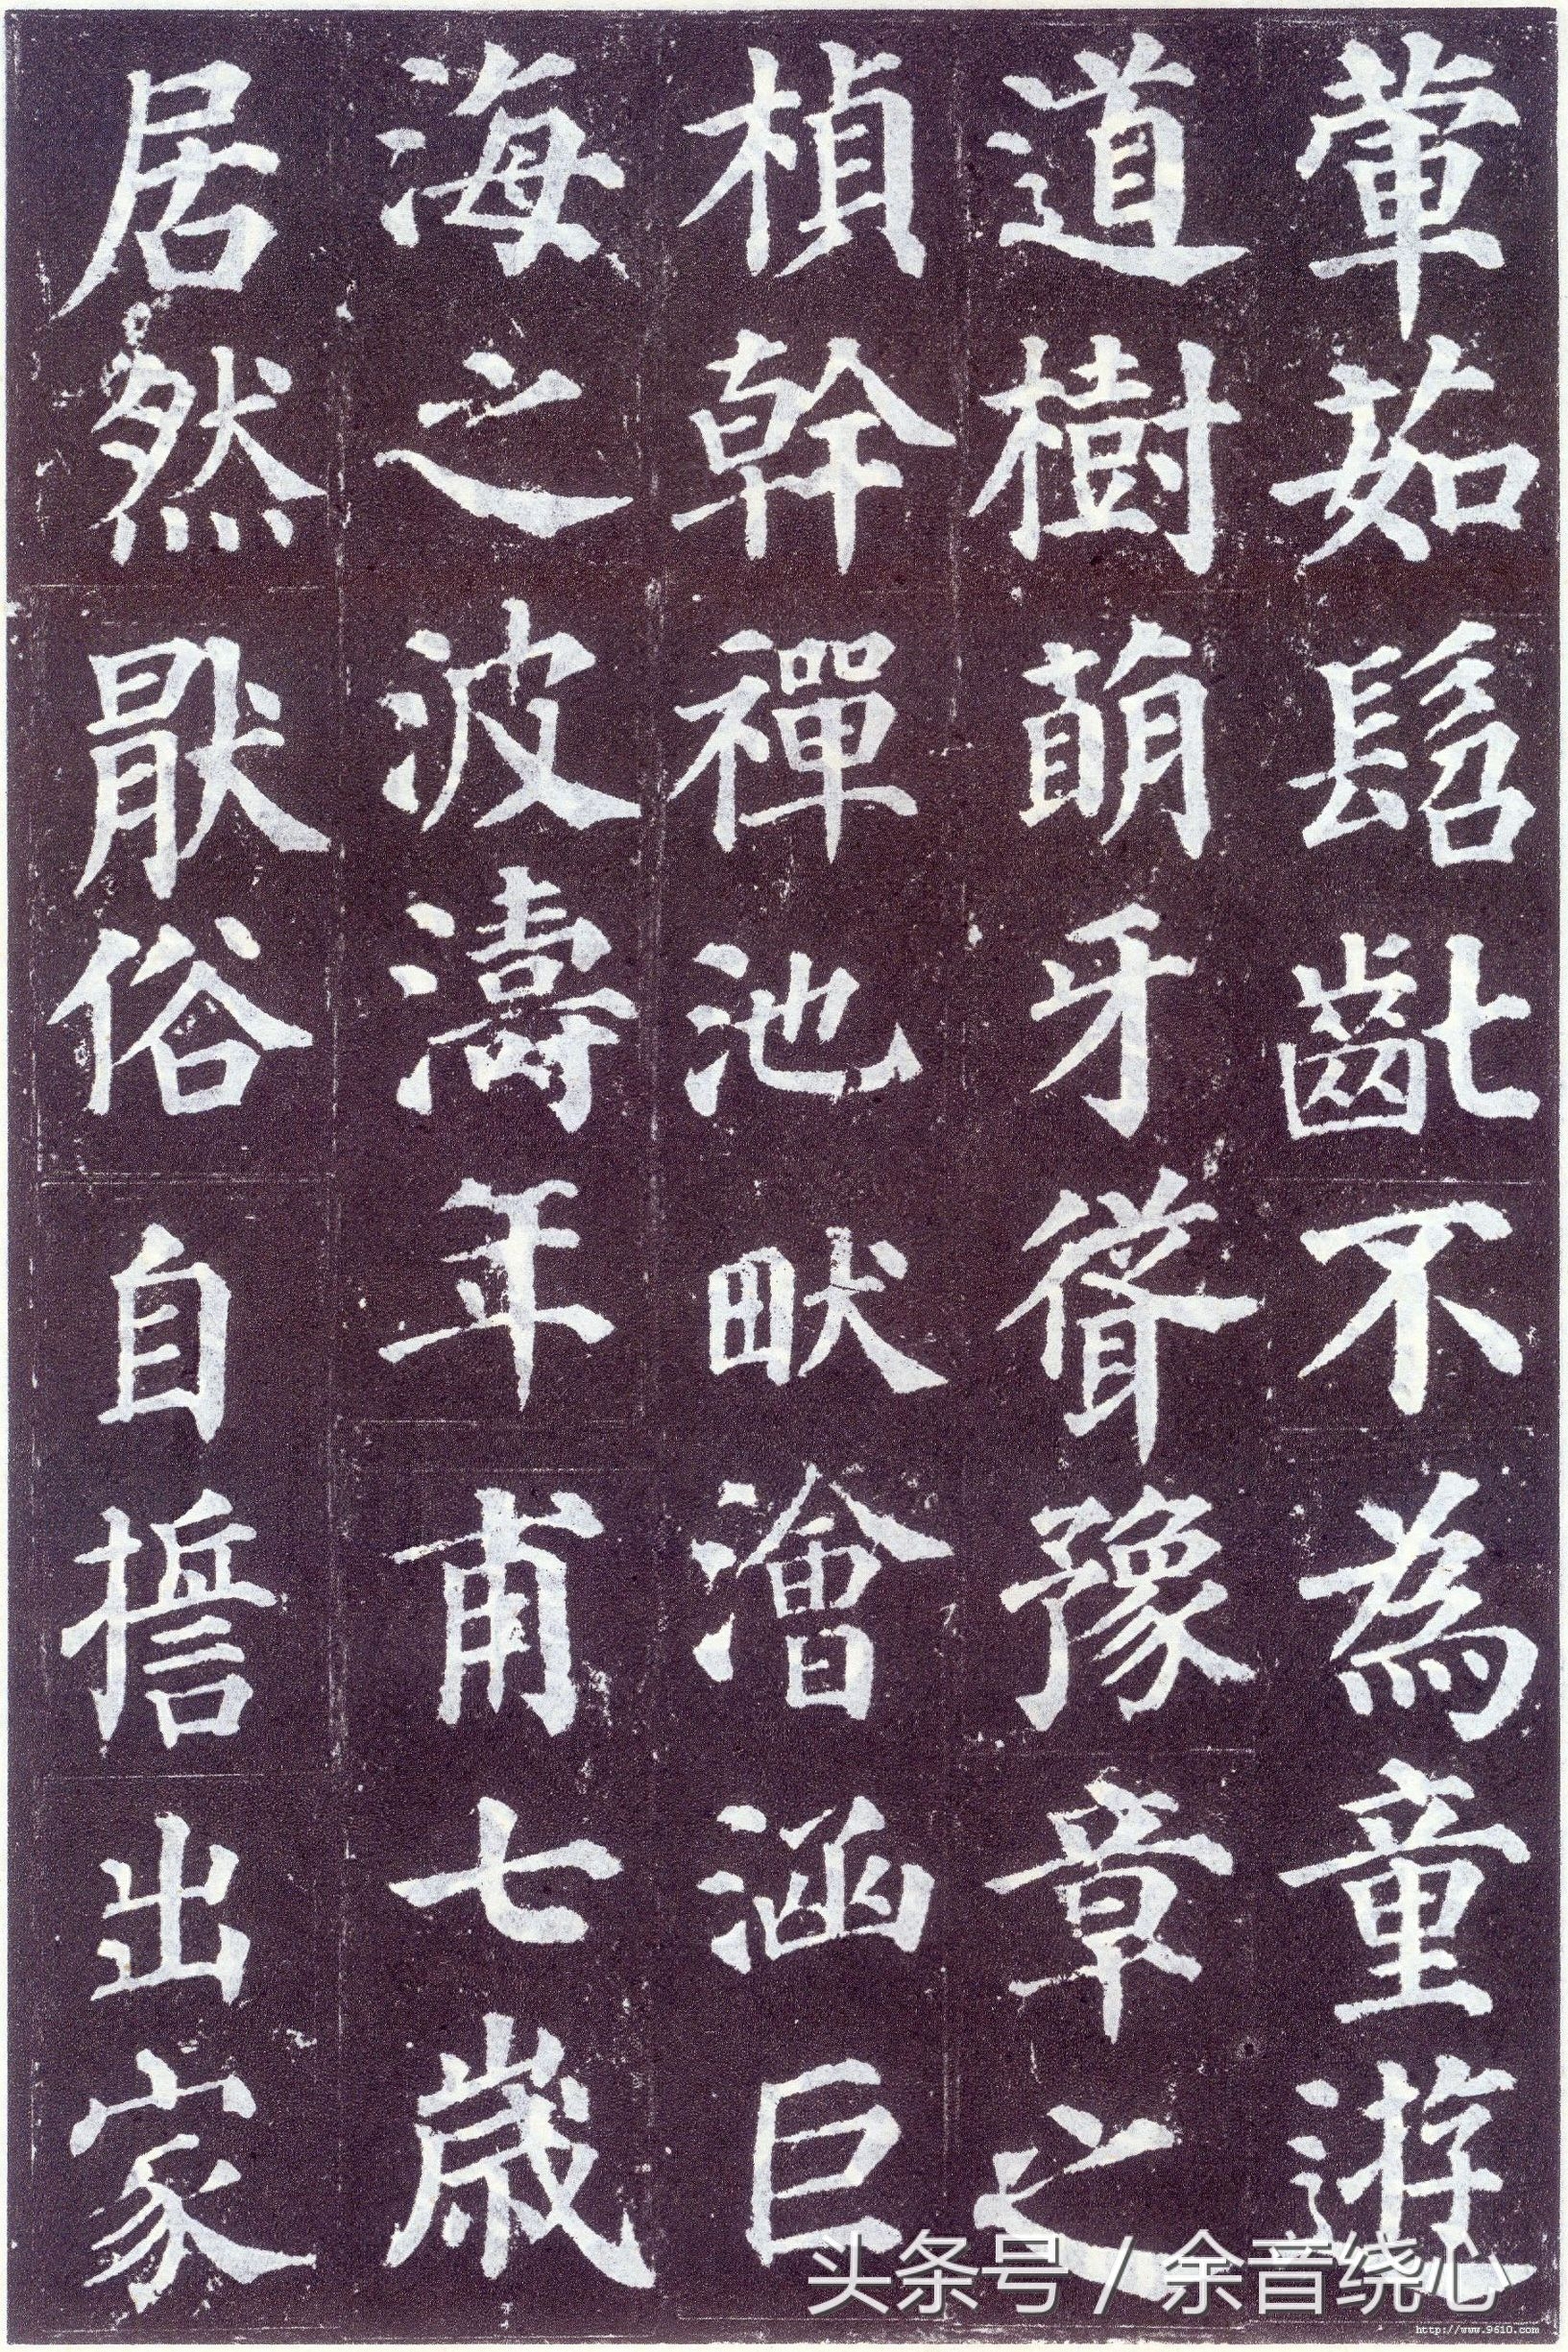 葷茹髫齔不為童遊
道樹萌牙聳豫章之
楨幹禪池畎澮涵巨
海之波濤年甫七歲
居然厭俗自誓出家
头条号 / 余音绕心
http://www.9610.com